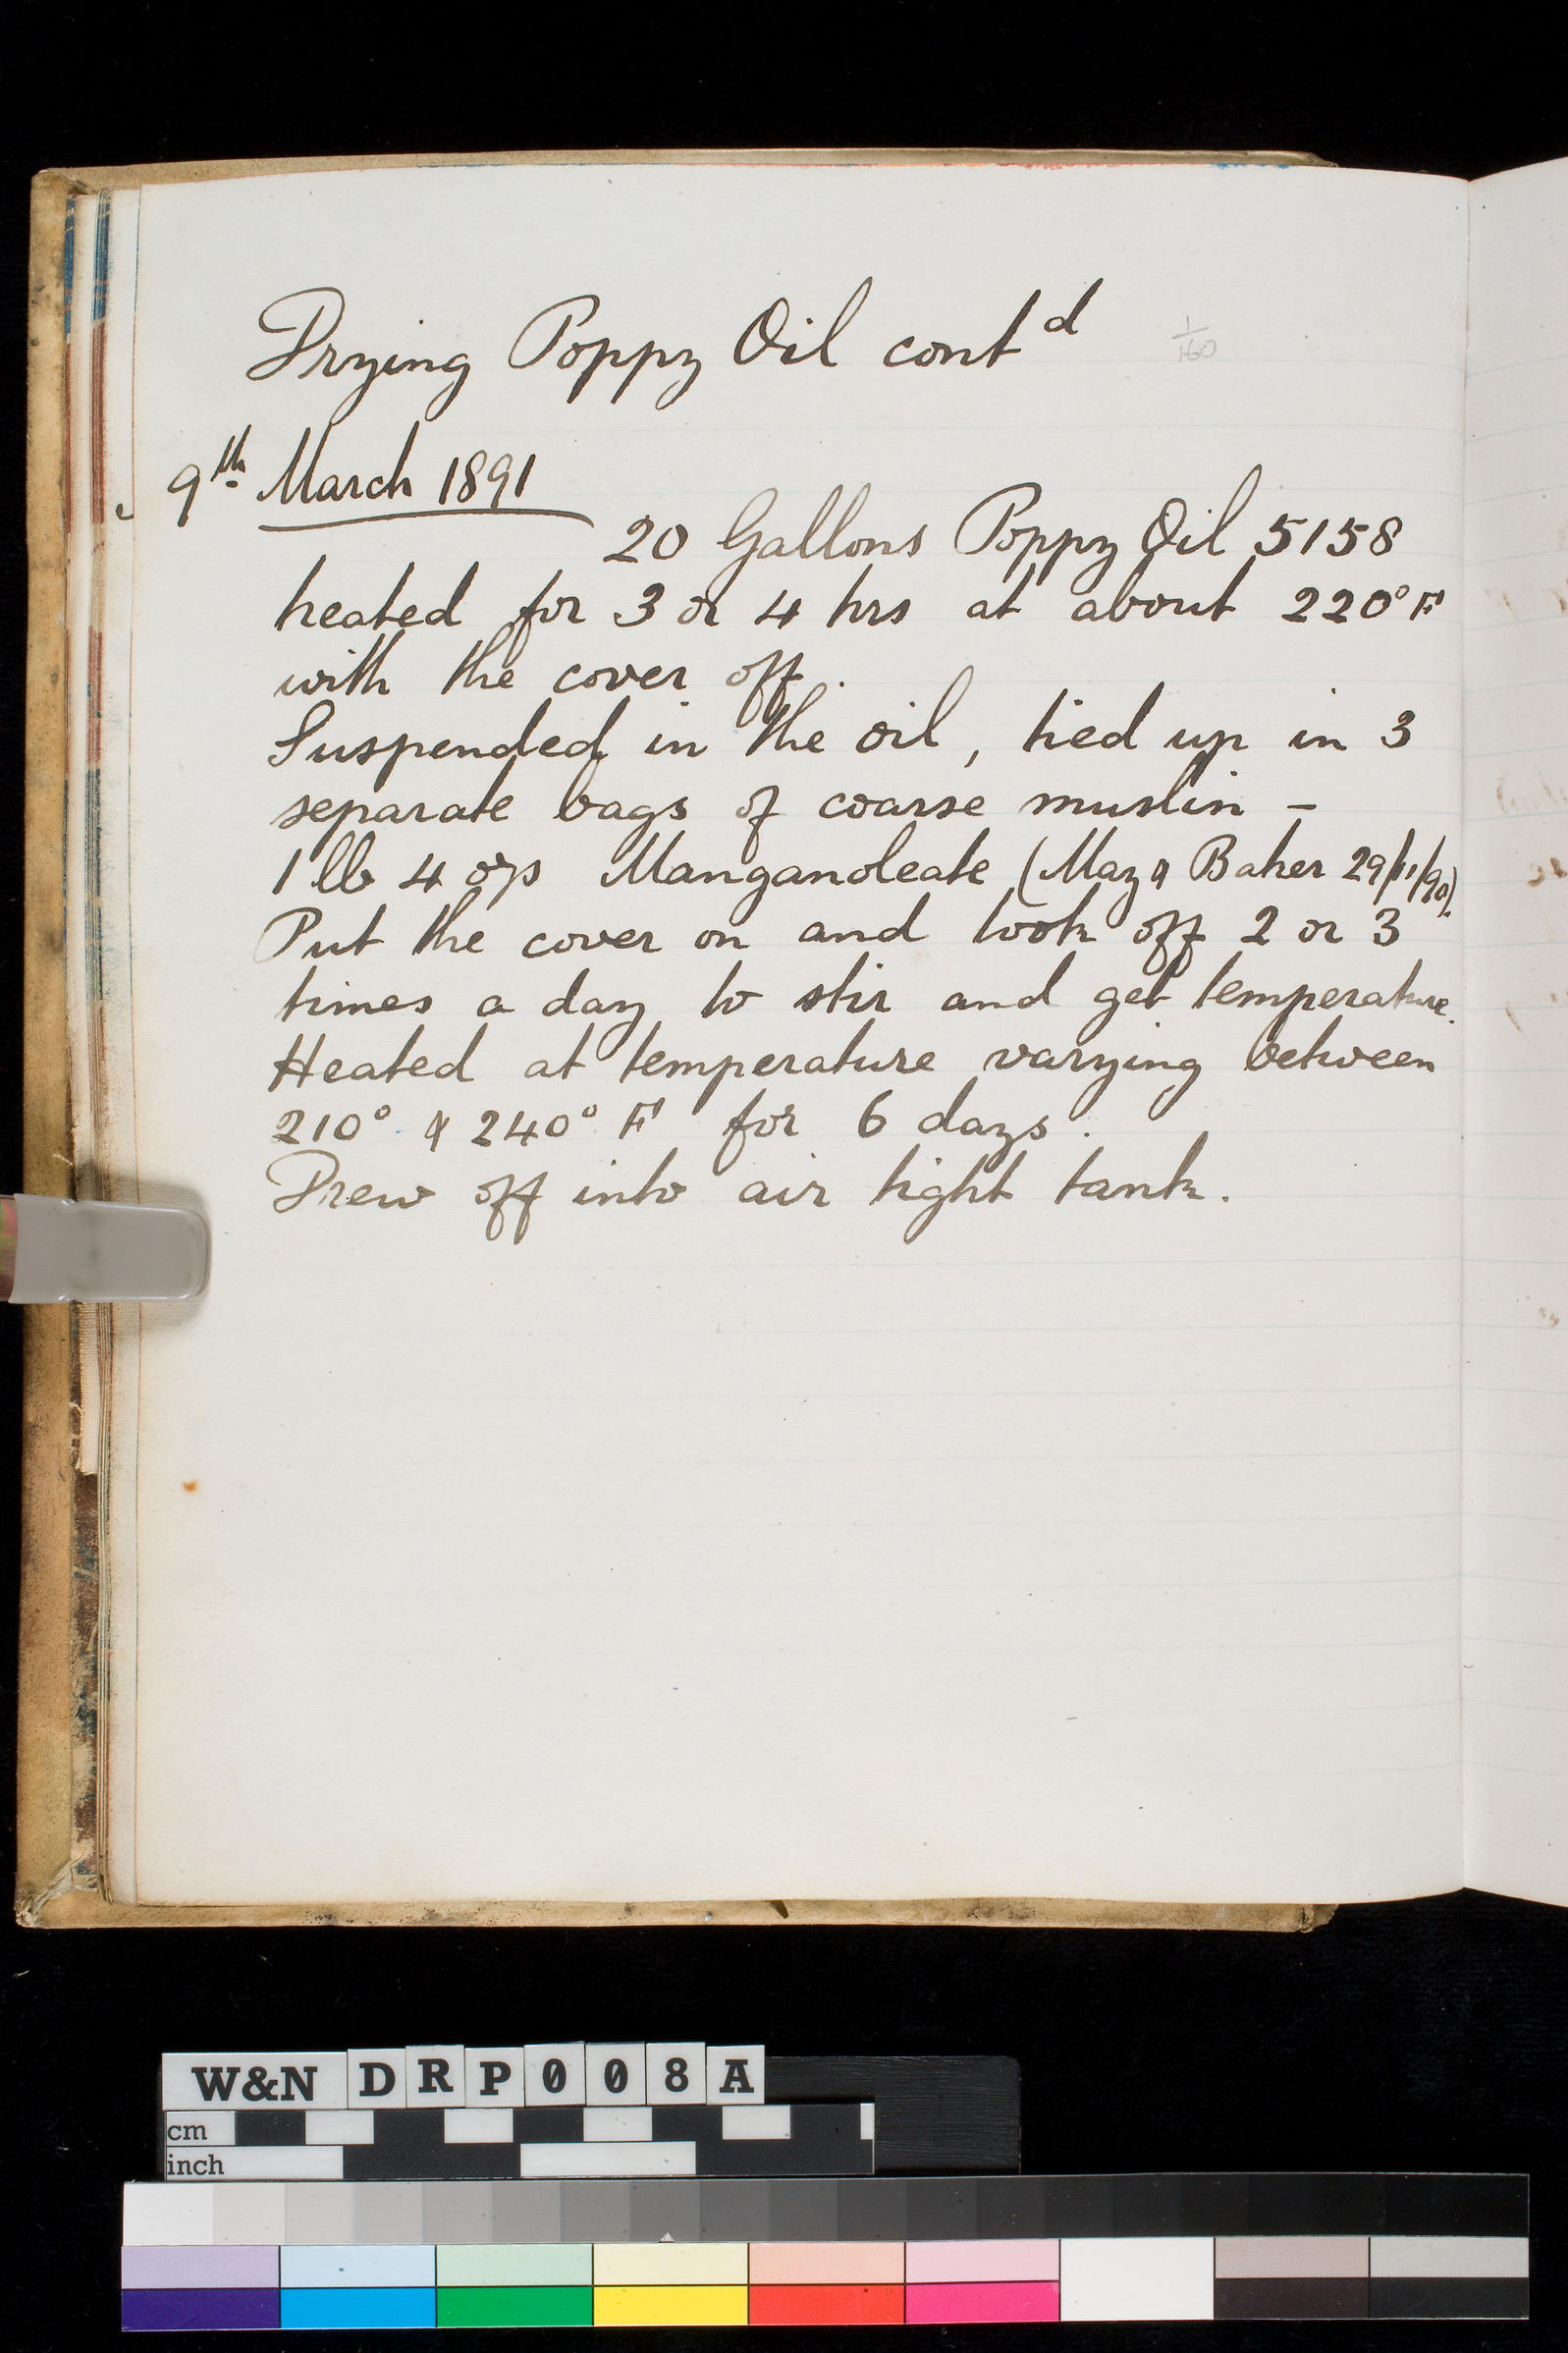 Drying Poppy Oil cont d
1/160
9th March 1891
20 Gallons Poppy Oil 5158
heated for 3 or 4 hrs at about 220° F
with the cover off.
Suspended in the oil, tied up in 3
separate bags of coarse muslin –
1 lb 4 ozs Manganoleate (May & Baker 29/11/90).
Put the cover on and took off 2 or 3
times a day to stir and get temperature.
Heated at temperature varying between
210° & 240° F for 6 days.
Drew off into air tight tank.
W&N DRP008A
cm
inch